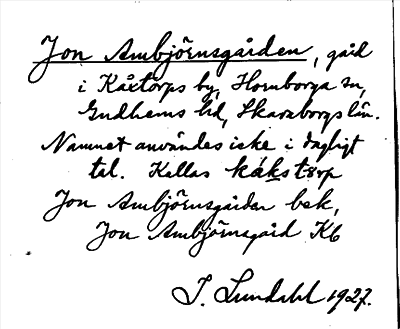 Jon Ambjörnsgården, gård
i Kåxtorps by, Hornborga sn,
Gudhems hd, Skaraborgs län.
Namnet användes icke i dagligt
tal. Kallas
Jon Ambjörnsgården bek,
Jon Ambjörnsgård Kb
I. Lundahl 1927.